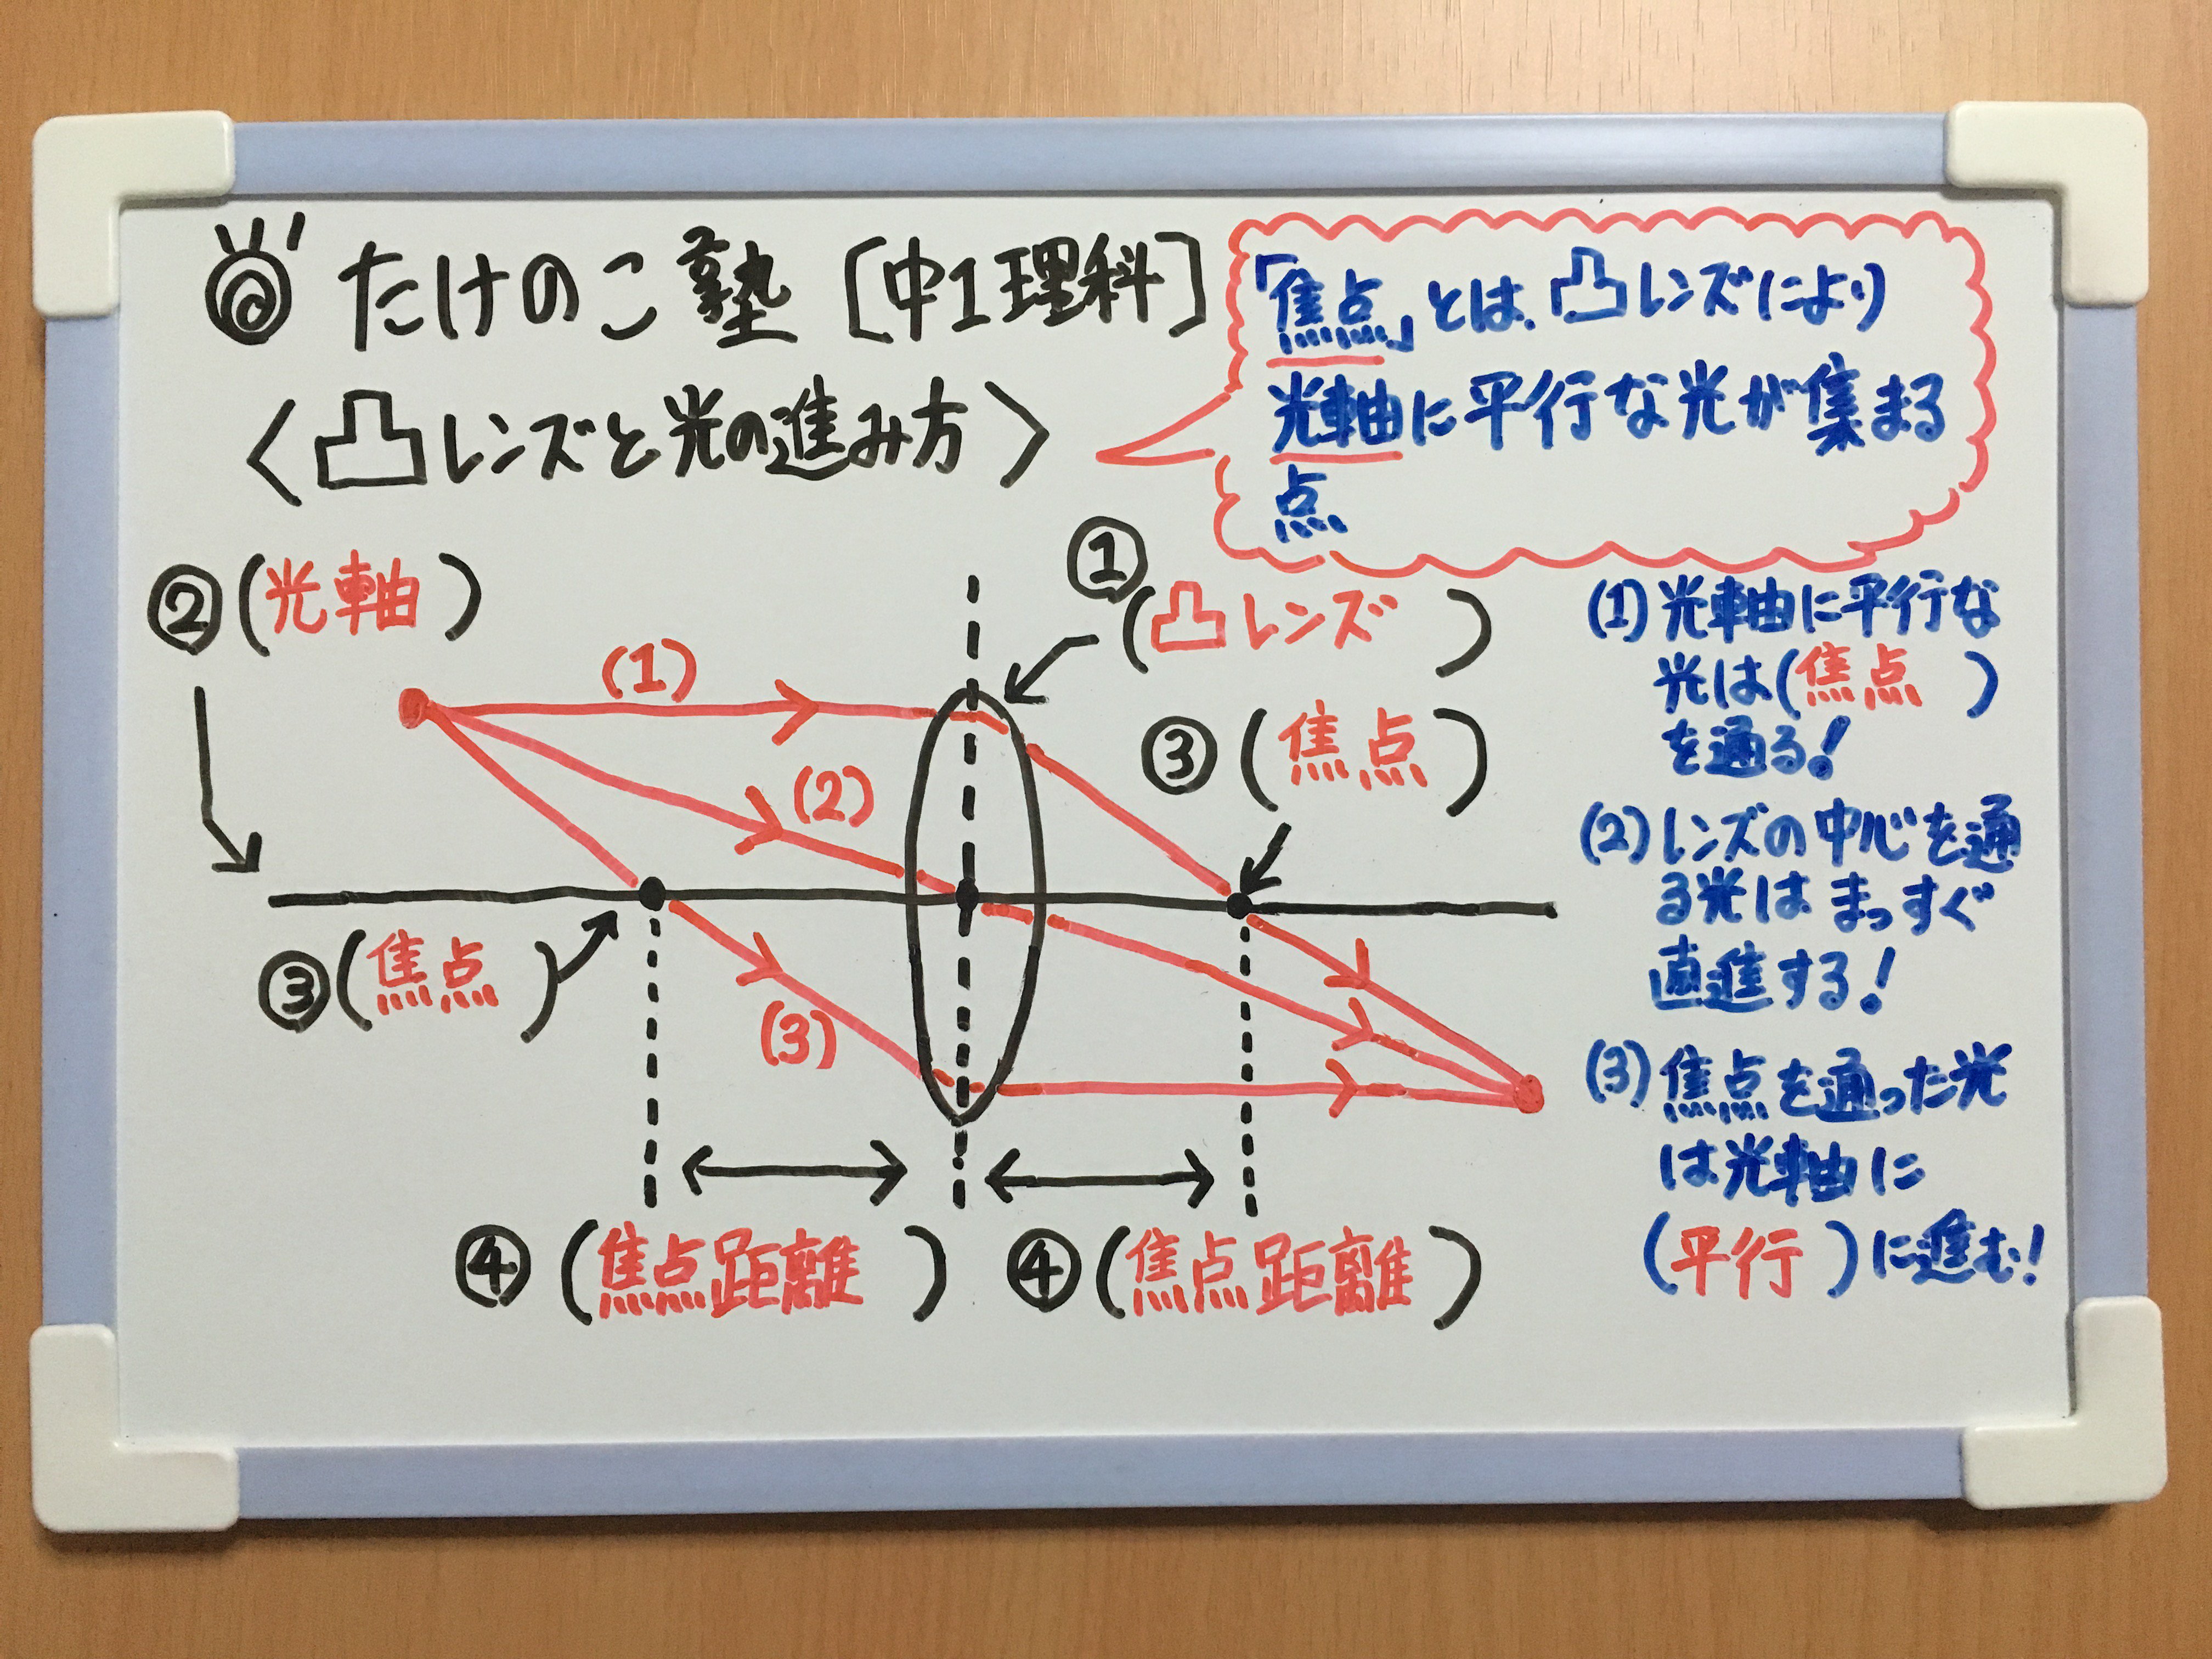 たけのこ塾 [中1理科]
〈凸レンズと光の進み方〉
「焦点」とは、凸レンズにより
光軸に平行な光が集まる
点
②(光軸)
①
(凸レンズ)
(1)
③(焦点)
(2)
③(焦点)
(3)
④(焦点距離)
④(焦点距離)
(1)光軸に平行な
光は(焦点)
を通る!
(2)レンズの中心を通
る光はまっすぐ
直進する!
(3)焦点を通った光
は光軸に
(平行)に進む!